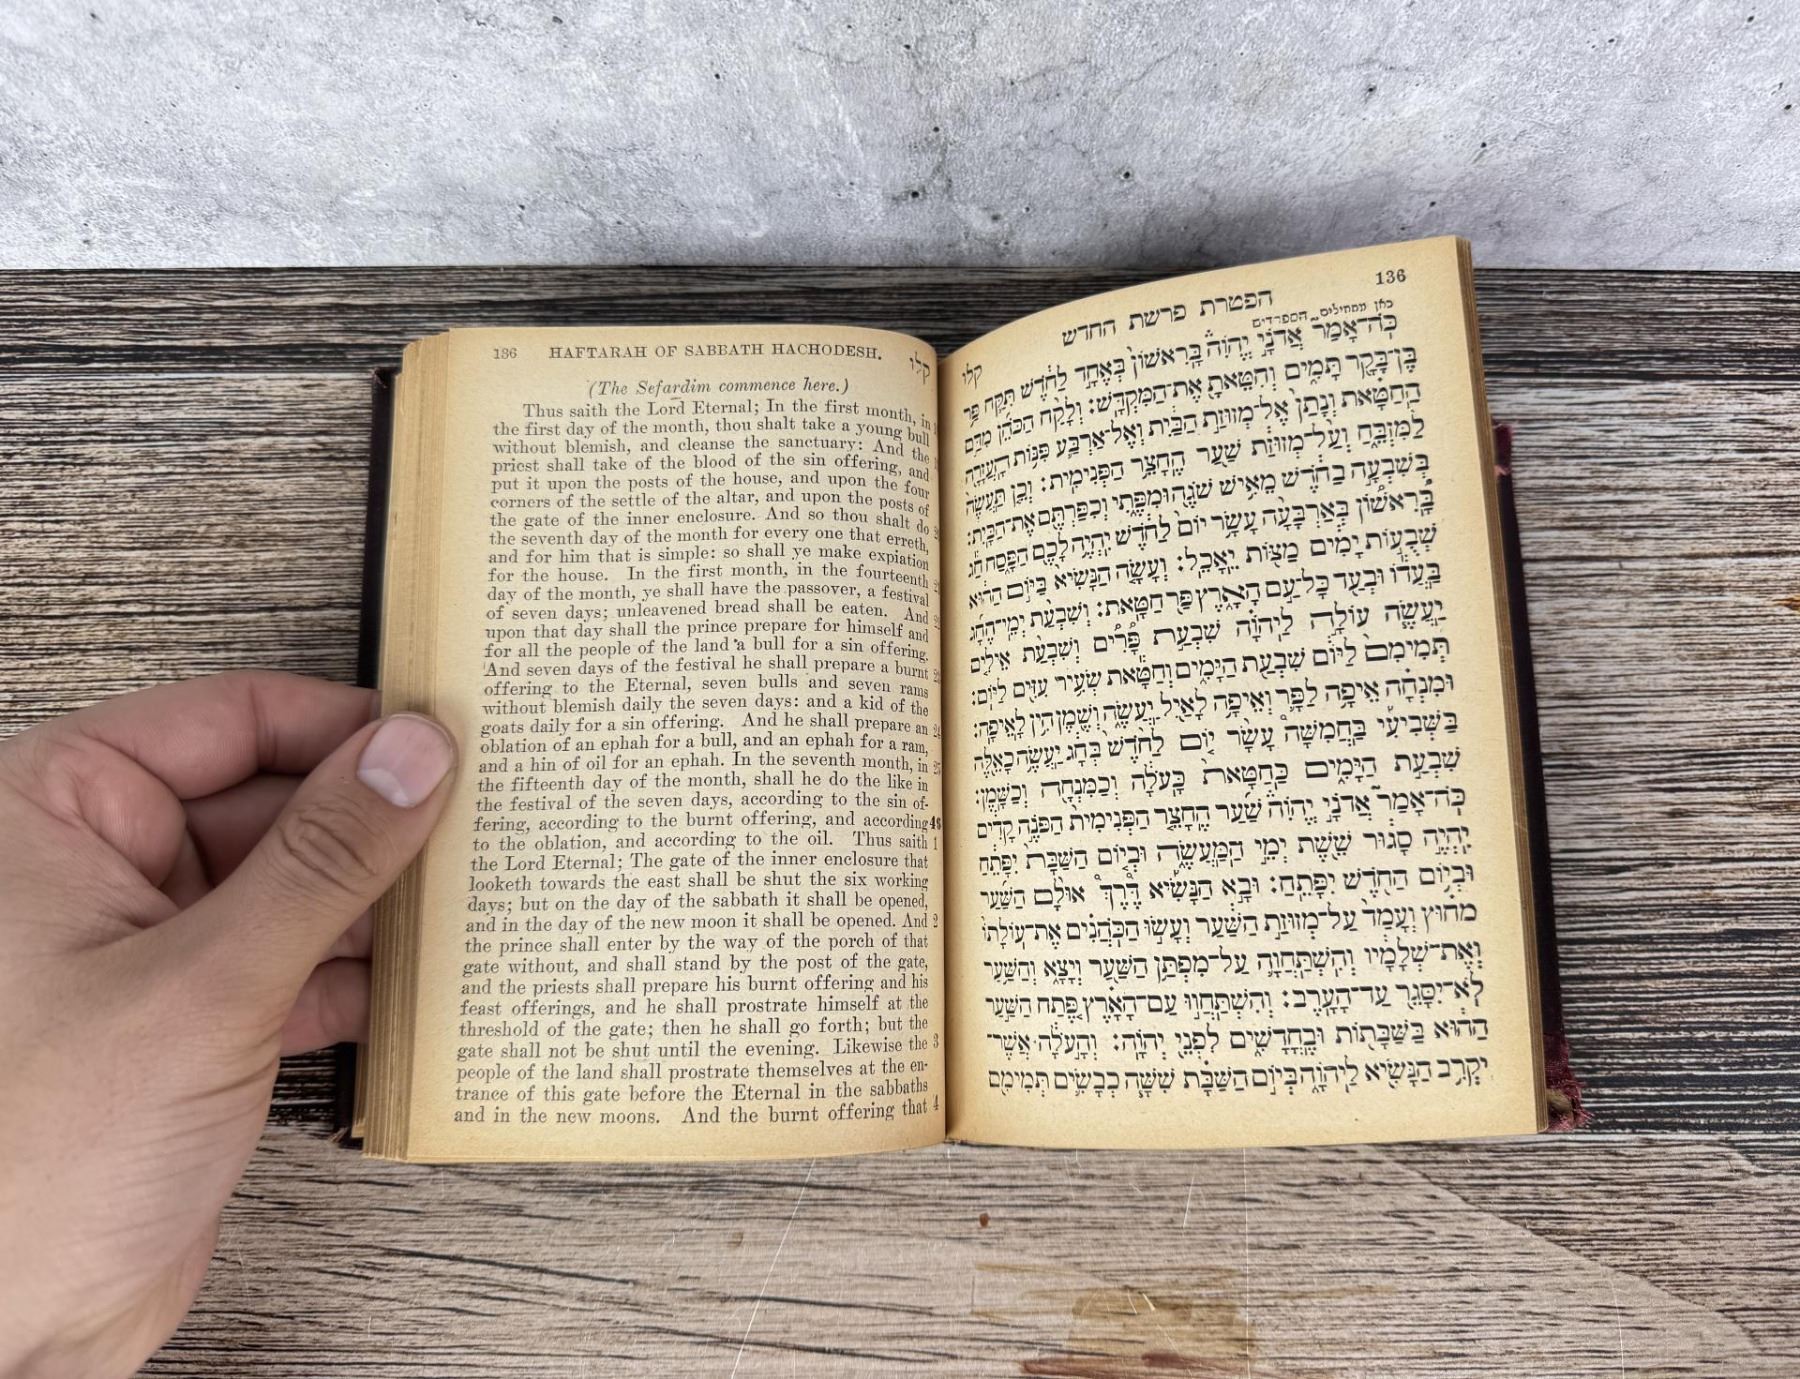 136 HAFTARAH OF SABBATH HACHODESH. קלו
(The Sefardim commence here.)
Thus saith the Lord Eternal; In the first month, in
the first day of the month, thou shalt take a young bull
without blemish, and cleanse the sanctuary: And the
priest shall take of the blood of the sin offering, and
put it upon the posts of the house, and upon the four
corners of the settle of the altar, and upon the posts of
the gate of the inner enclosure. And so thou shalt do
the seventh day of the month for every one that erreth,
and for him that is simple: so shall ye make expiation
for the house. In the first month, in the fourteenth
day of the month, ye shall have the passover, a festival
of seven days; unleavened bread shall be eaten. And
upon that day shall the prince prepare for himself and
for all the people of the land a bull for a sin offering.
And seven days of the festival he shall prepare a burnt
offering to the Eternal, seven bulls and seven rams
without blemish daily the seven days: and a kid of the
goats daily for a sin offering. And he shall prepare an
oblation of an ephah for a bull, and an ephah for a ram,
and a hin of oil for an ephah. In the seventh month, in
the fifteenth day of the month, shall he do the like in
the festival of the seven days, according to the sin of-
fering, according to the burnt offering, and according
to the oblation, and according to the oil. Thus saith 1
the Lord Eternal; The gate of the inner enclosure that
looketh towards the east shall be shut the six working
days; but on the day of the sabbath it shall be opened,
and in the day of the new moon it shall be opened. And 2
the prince shall enter by the way of the porch of that
gate without, and shall stand by the post of the gate,
and the priests shall prepare his burnt offering and his
feast offerings, and he shall prostrate himself at the
threshold of the gate; then he shall go forth; but the
gate shall not be shut until the evening. Likewise the 3
people of the land shall prostrate themselves at the en-
trance of this gate before the Eternal in the sabbaths
and in the new moons. And the burnt offering that 4
קלו הפטרת פרשת החדש 136
כאן מתחילים הספרדים
כֹּה־אָמַר אֲדֹנָי יֱהֹוִה בָּרִאשׁוֹן בְּאֶחָד לַחֹדֶשׁ תִּקַּח פַּר
בֶּן־בָּקָר תָּמִים וְחִטֵּאתָ אֶת־הַמִּקְדָּשׁ: וְלָקַח הַכֹּהֵן מִדַּם
הַחַטָּאת וְנָתַן אֶל־מְזוּזַת הַבַּיִת וְאֶל־אַרְבַּע פִּנּוֹת הָעֲזָרָה
לַמִּזְבֵּחַ וְעַל־מְזוּזַת שַׁעַר הֶחָצֵר הַפְּנִימִית: וְכֵן תַּעֲשֶׂה
בְּשִׁבְעָה בַחֹדֶשׁ מֵאִישׁ שֹׁגֶה וּמִפֶּתִי וְכִפַּרְתֶּם אֶת־הַבָּיִת:
בָּרִאשׁוֹן בְּאַרְבָּעָה עָשָׂר יוֹם לַחֹדֶשׁ יִהְיֶה לָכֶם הַפָּסַח חָג
שְׁבֻעוֹת יָמִים מַצּוֹת יֵאָכֵל: וְעָשָׂה הַנָּשִׂיא בַּיּוֹם הַהוּא
בַּעֲדוֹ וּבְעַד כָּל־עַם הָאָרֶץ פַּר חַטָּאת: וְשִׁבְעַת יְמֵי־הֶחָג
יַעֲשֶׂה עוֹלָה לַיהוָֹה שִׁבְעַת פָּרִים וְשִׁבְעַת אֵילִים
תְּמִימִם לַיּוֹם שִׁבְעַת הַיָּמִים וְחַטָּאת שְׂעִיר עִזִּים לַיּוֹם:
וּמִנְחָה אֵיפָה לַפָּר וְאֵיפָה לָאַיִל יַעֲשֶׂה וְשֶׁמֶן הִין לָאֵיפָה:
בַּשְּׁבִיעִי בַּחֲמִשָּׁה עָשָׂר יוֹם לַחֹדֶשׁ בֶּחָג יַעֲשֶׂה כָאֵלֶּה
שִׁבְעַת הַיָּמִים כַּחַטָּאת כָּעֹלָה וְכַמִּנְחָה וְכַשָּׁמֶן:
כֹּה־אָמַר אֲדֹנָי יֱהֹוִה שַׁעַר הֶחָצֵר הַפְּנִימִית הַפֹּנֶה קָדִים
יִהְיֶה סָגוּר שֵׁשֶׁת יְמֵי הַמַּעֲשֶׂה וּבְיוֹם הַשַּׁבָּת יִפָּתֵחַ
וּבְיוֹם הַחֹדֶשׁ יִפָּתֵחַ: וּבָא הַנָּשִׂיא דֶּרֶךְ אוּלָם הַשַּׁעַר
מִחוּץ וְעָמַד עַל־מְזוּזַת הַשַּׁעַר וְעָשׂוּ הַכֹּהֲנִים אֶת־עוֹלָתוֹ
וְאֶת־שְׁלָמָיו וְהִשְׁתַּחֲוָה עַל־מִפְתַּן הַשַּׁעַר וְיָצָא וְהַשַּׁעַר
לֹא־יִסָּגֵר עַד־הָעָרֶב: וְהִשְׁתַּחֲווּ עַם־הָאָרֶץ פֶּתַח הַשַּׁעַר
הַהוּא בַּשַּׁבָּתוֹת וּבֶחֳדָשִׁים לִפְנֵי יְהוָֹה: וְהָעֹלָה אֲשֶׁר־
יַקְרִב הַנָּשִׂיא לַיהוָֹה בְּיוֹם הַשַּׁבָּת שִׁשָּׁה כְבָשִׂים תְּמִימִם